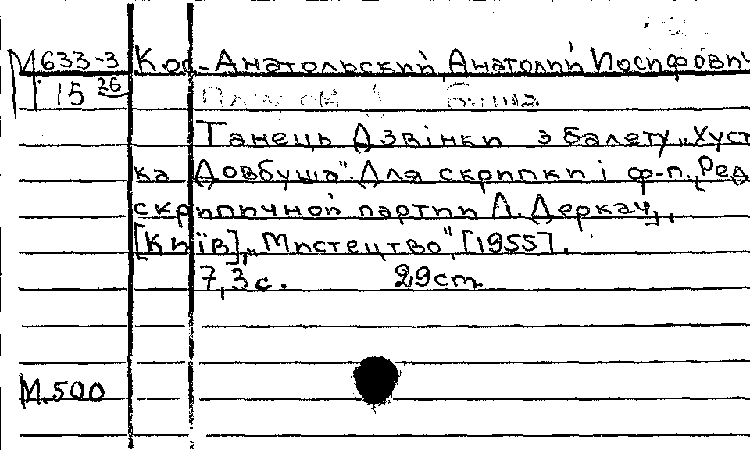 М633-3 Кос-Анатольский, Анатолий Иосифови
15 26
Танець Дзвінки з балету „Хуст
ка Довбуша". Для скрипки і ф-п., [Ред.
скрипичной партии Л. Деркач],
[Київ], „Мистецтво", [1955].
7,3 с. 29 cm.
М.500